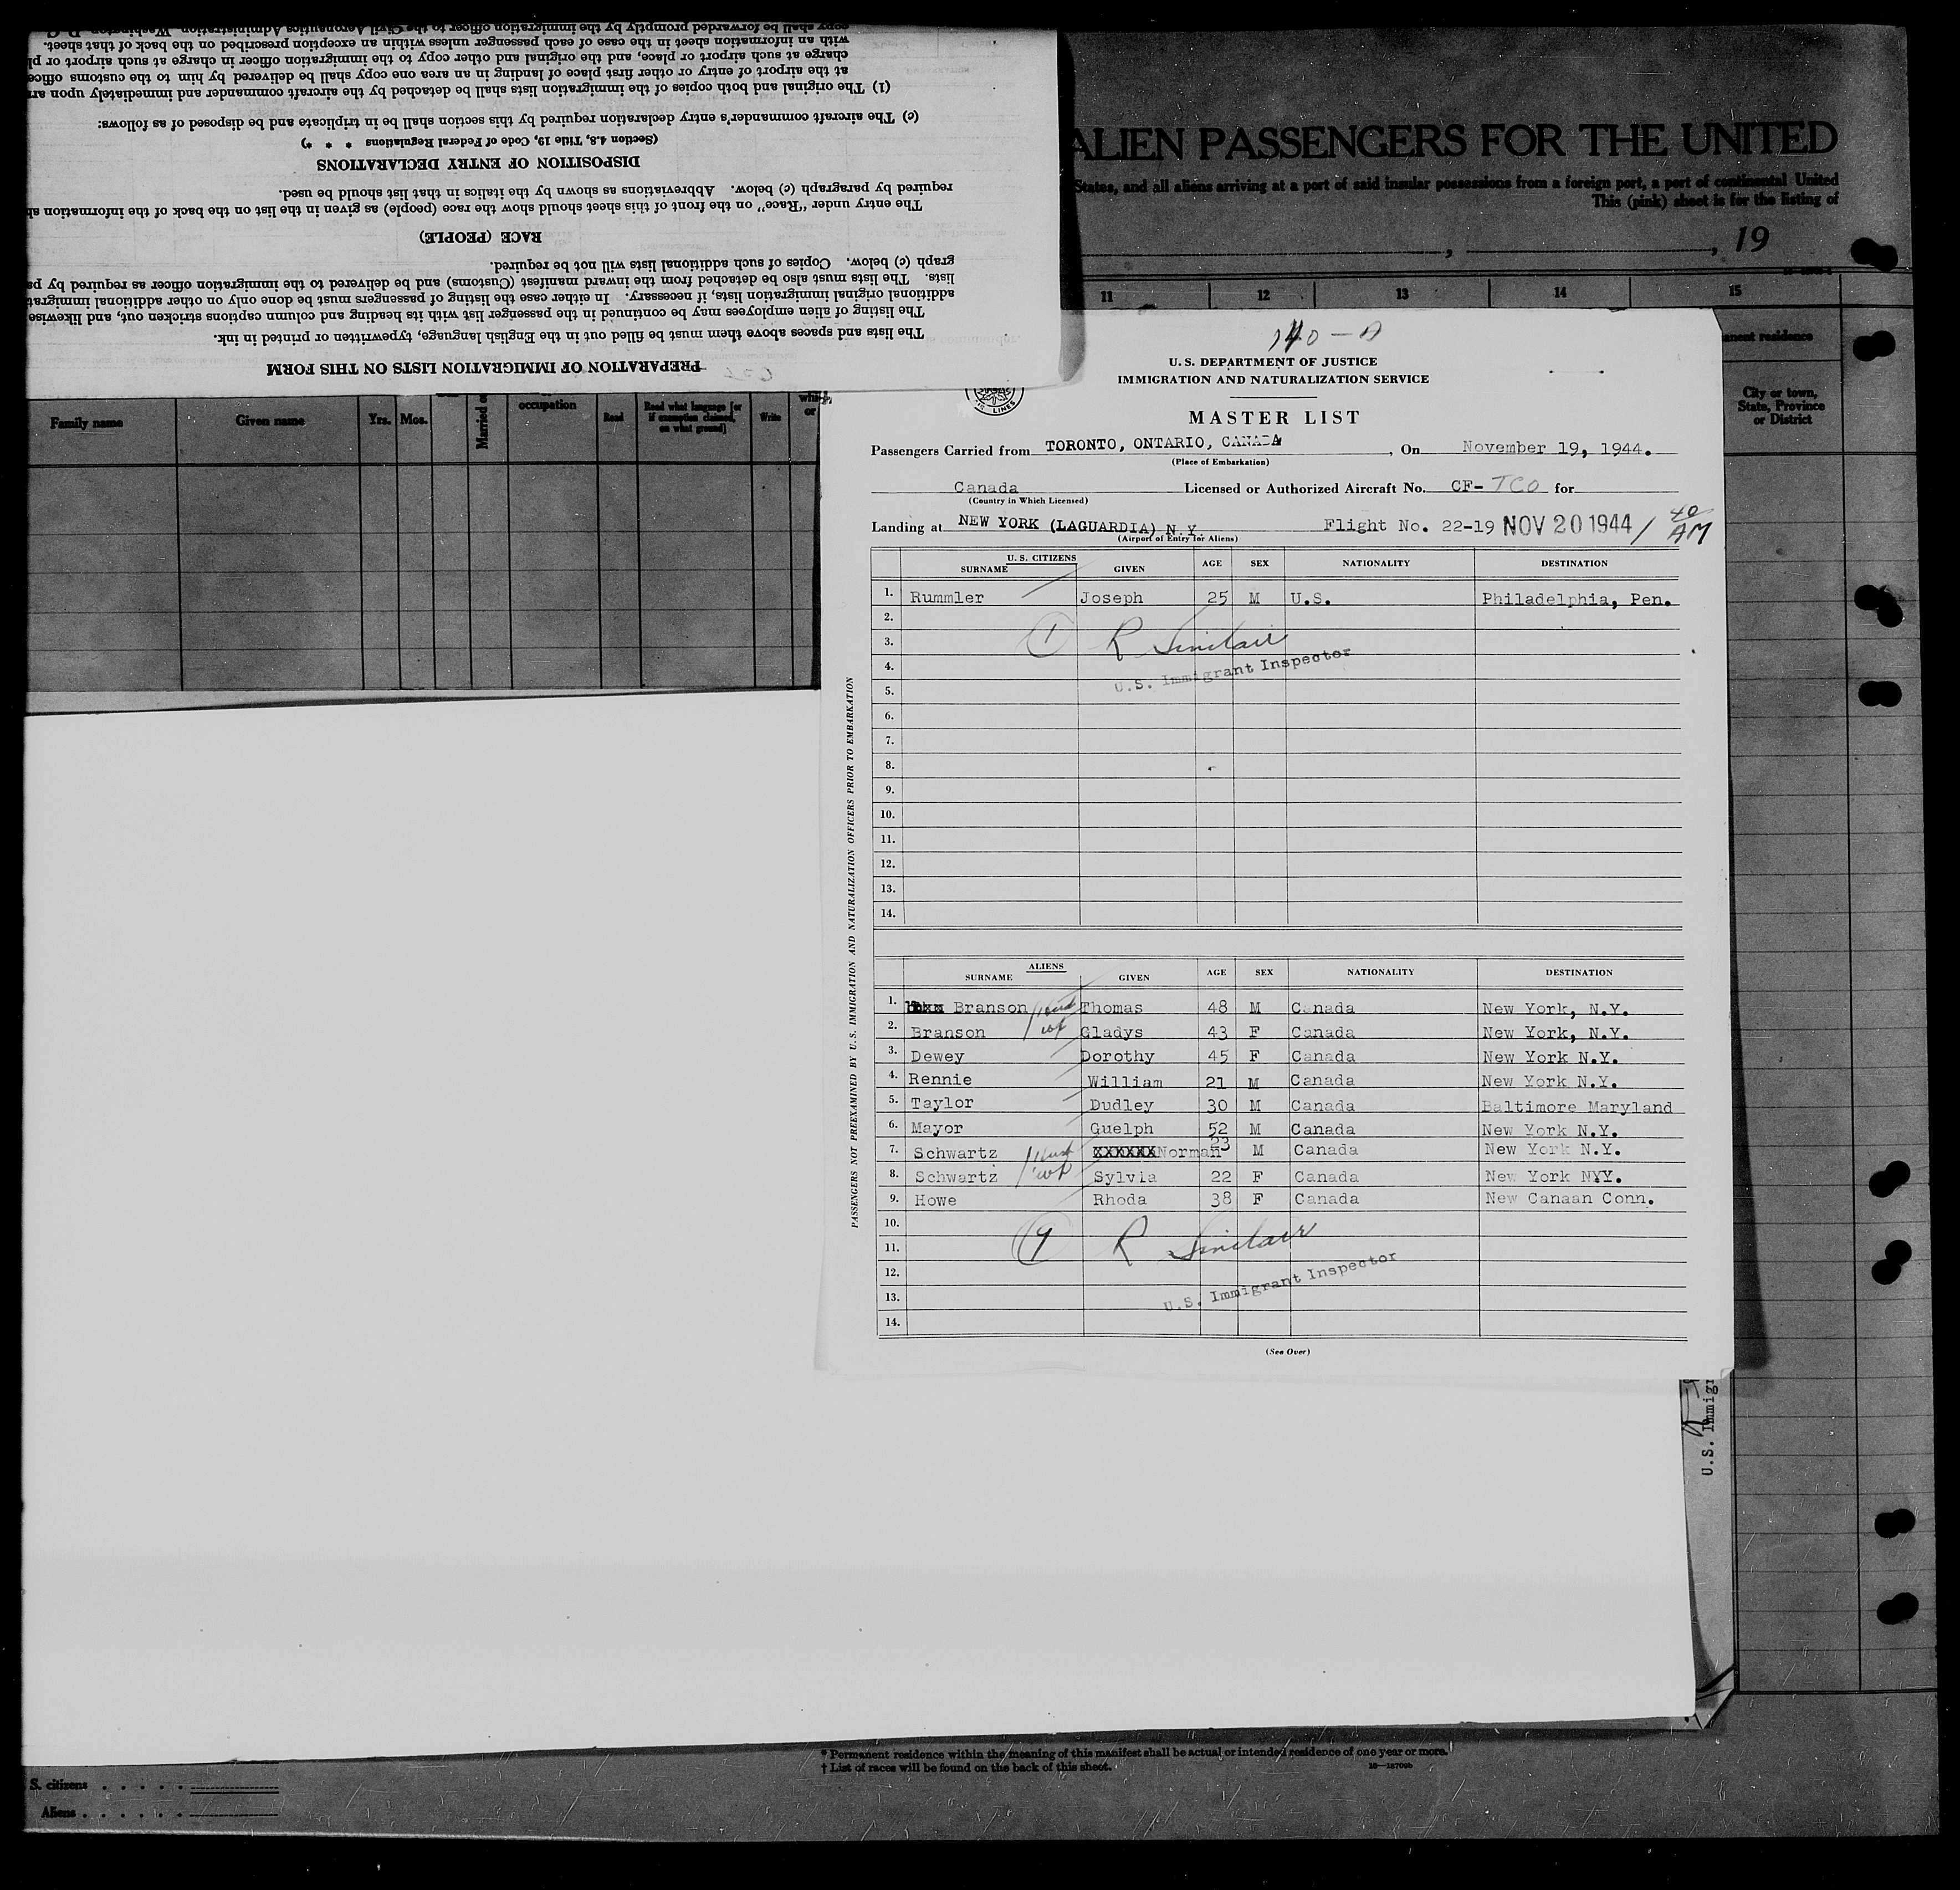 PREPARATION OF IMMIGRATION LISTS ON THIS FORM
The lists and spaces above them must be filled out in the English language, typewritten or printed in ink.
The listing of alien employees may be continued in the passenger list with its heading and column captions stricken out, and likewise
additional original immigration lists, if necessary. In either case the listing of passengers must be done only on other additional
lists. The lists must also be detached from the inward manifest (Customs) and be delivered to the immigration officer as required by
graph (c) below. Copies of such additional lists will not be required.
RACE (PEOPLE)
The entry under "Race" on the front of this sheet should show the race (people) as given in the list on the back of the information
required by paragraph (c) below. Abbreviations as shown by the italics in that list should be used.
DISPOSITION OF ENTRY DECLARATIONS
(Section 4.8, Title 19, Code of Federal Regulations * * *)
(c) The aircraft commander's entry declaration required by this section shall be in triplicate and be disposed of as follows:
(1) The original and both copies of the immigration lists shall be detached by the aircraft commander and immediately upon
at the airport of entry or other first place of landing in an area one copy shall be delivered by him to the customs
charge at such airport or place, and the original and other copy to the immigration officer in charge at such airport or
with an information sheet in the case of each passenger unless within an exception prescribed on the back of that sheet.
copy shall be forwarded promptly by the immigration officer to the Civil Aeronautics Administration, Washington, D. C.
ALIEN PASSENGERS FOR THE UNITED
States, and all aliens arriving at a port of said insular possessions from a foreign port, a port of continental United
This (pink) sheet is for the listing of
, , 19
11 12 13 14 15
residence
City or town,
State, Province
or District
Family name Given name Yrs. Mos. Married occupation Read Read what language [or if exemption claimed, on what ground] Write
140-A
U. S. DEPARTMENT OF JUSTICE
IMMIGRATION AND NATURALIZATION SERVICE
LINES
MASTER LIST
Passengers Carried from TORONTO, ONTARIO, CANADA , On November 19, 1944.
(Place of Embarkation)
Canada Licensed or Authorized Aircraft No. CF- TCO for
(Country in Which Licensed)
Landing at NEW YORK (LAGUARDIA) N.Y. Flight No. 22-19 NOV 20 1944 / 40 AM
(Airport of Entry for Aliens)
U. S. CITIZENS
SURNAME GIVEN AGE SEX NATIONALITY DESTINATION
1. Rummler Joseph 25 M U.S. Philadelphia, Pen.
2.
3. 1 R Sinclair
4. U.S. Immigrant Inspector
5.
6.
7.
8.
9.
10.
11.
12.
13.
14.
ALIENS
SURNAME GIVEN AGE SEX NATIONALITY DESTINATION
1. Branson Thomas 48 M Canada New York, N.Y.
2. Branson Gladys 43 F Canada New York, N.Y.
3. Dewey Dorothy 45 F Canada New York N.Y.
4. Rennie William 21 M Canada New York N.Y.
5. Taylor Dudley 30 M Canada Baltimore Maryland
6. Mayor Guelph 52 M Canada New York N.Y.
7. Schwartz XXXXXX Norman 23 M Canada New York N.Y.
8. Schwartz Sylvia 22 F Canada New York NYY.
9. Howe Rhoda 38 F Canada New Canaan Conn.
10.
11. 9 R Sinclair
12. U.S. Immigrant Inspector
13.
14.
(See Over)
PASSENGERS NOT PREEXAMINED BY U.S. IMMIGRATION AND NATURALIZATION OFFICERS PRIOR TO EMBARKATION
U.S. Immigr
* Permanent residence within the meaning of this manifest shall be actual or intended residence of one year or more.
† List of races will be found on the back of this sheet.
S. citizens
Aliens